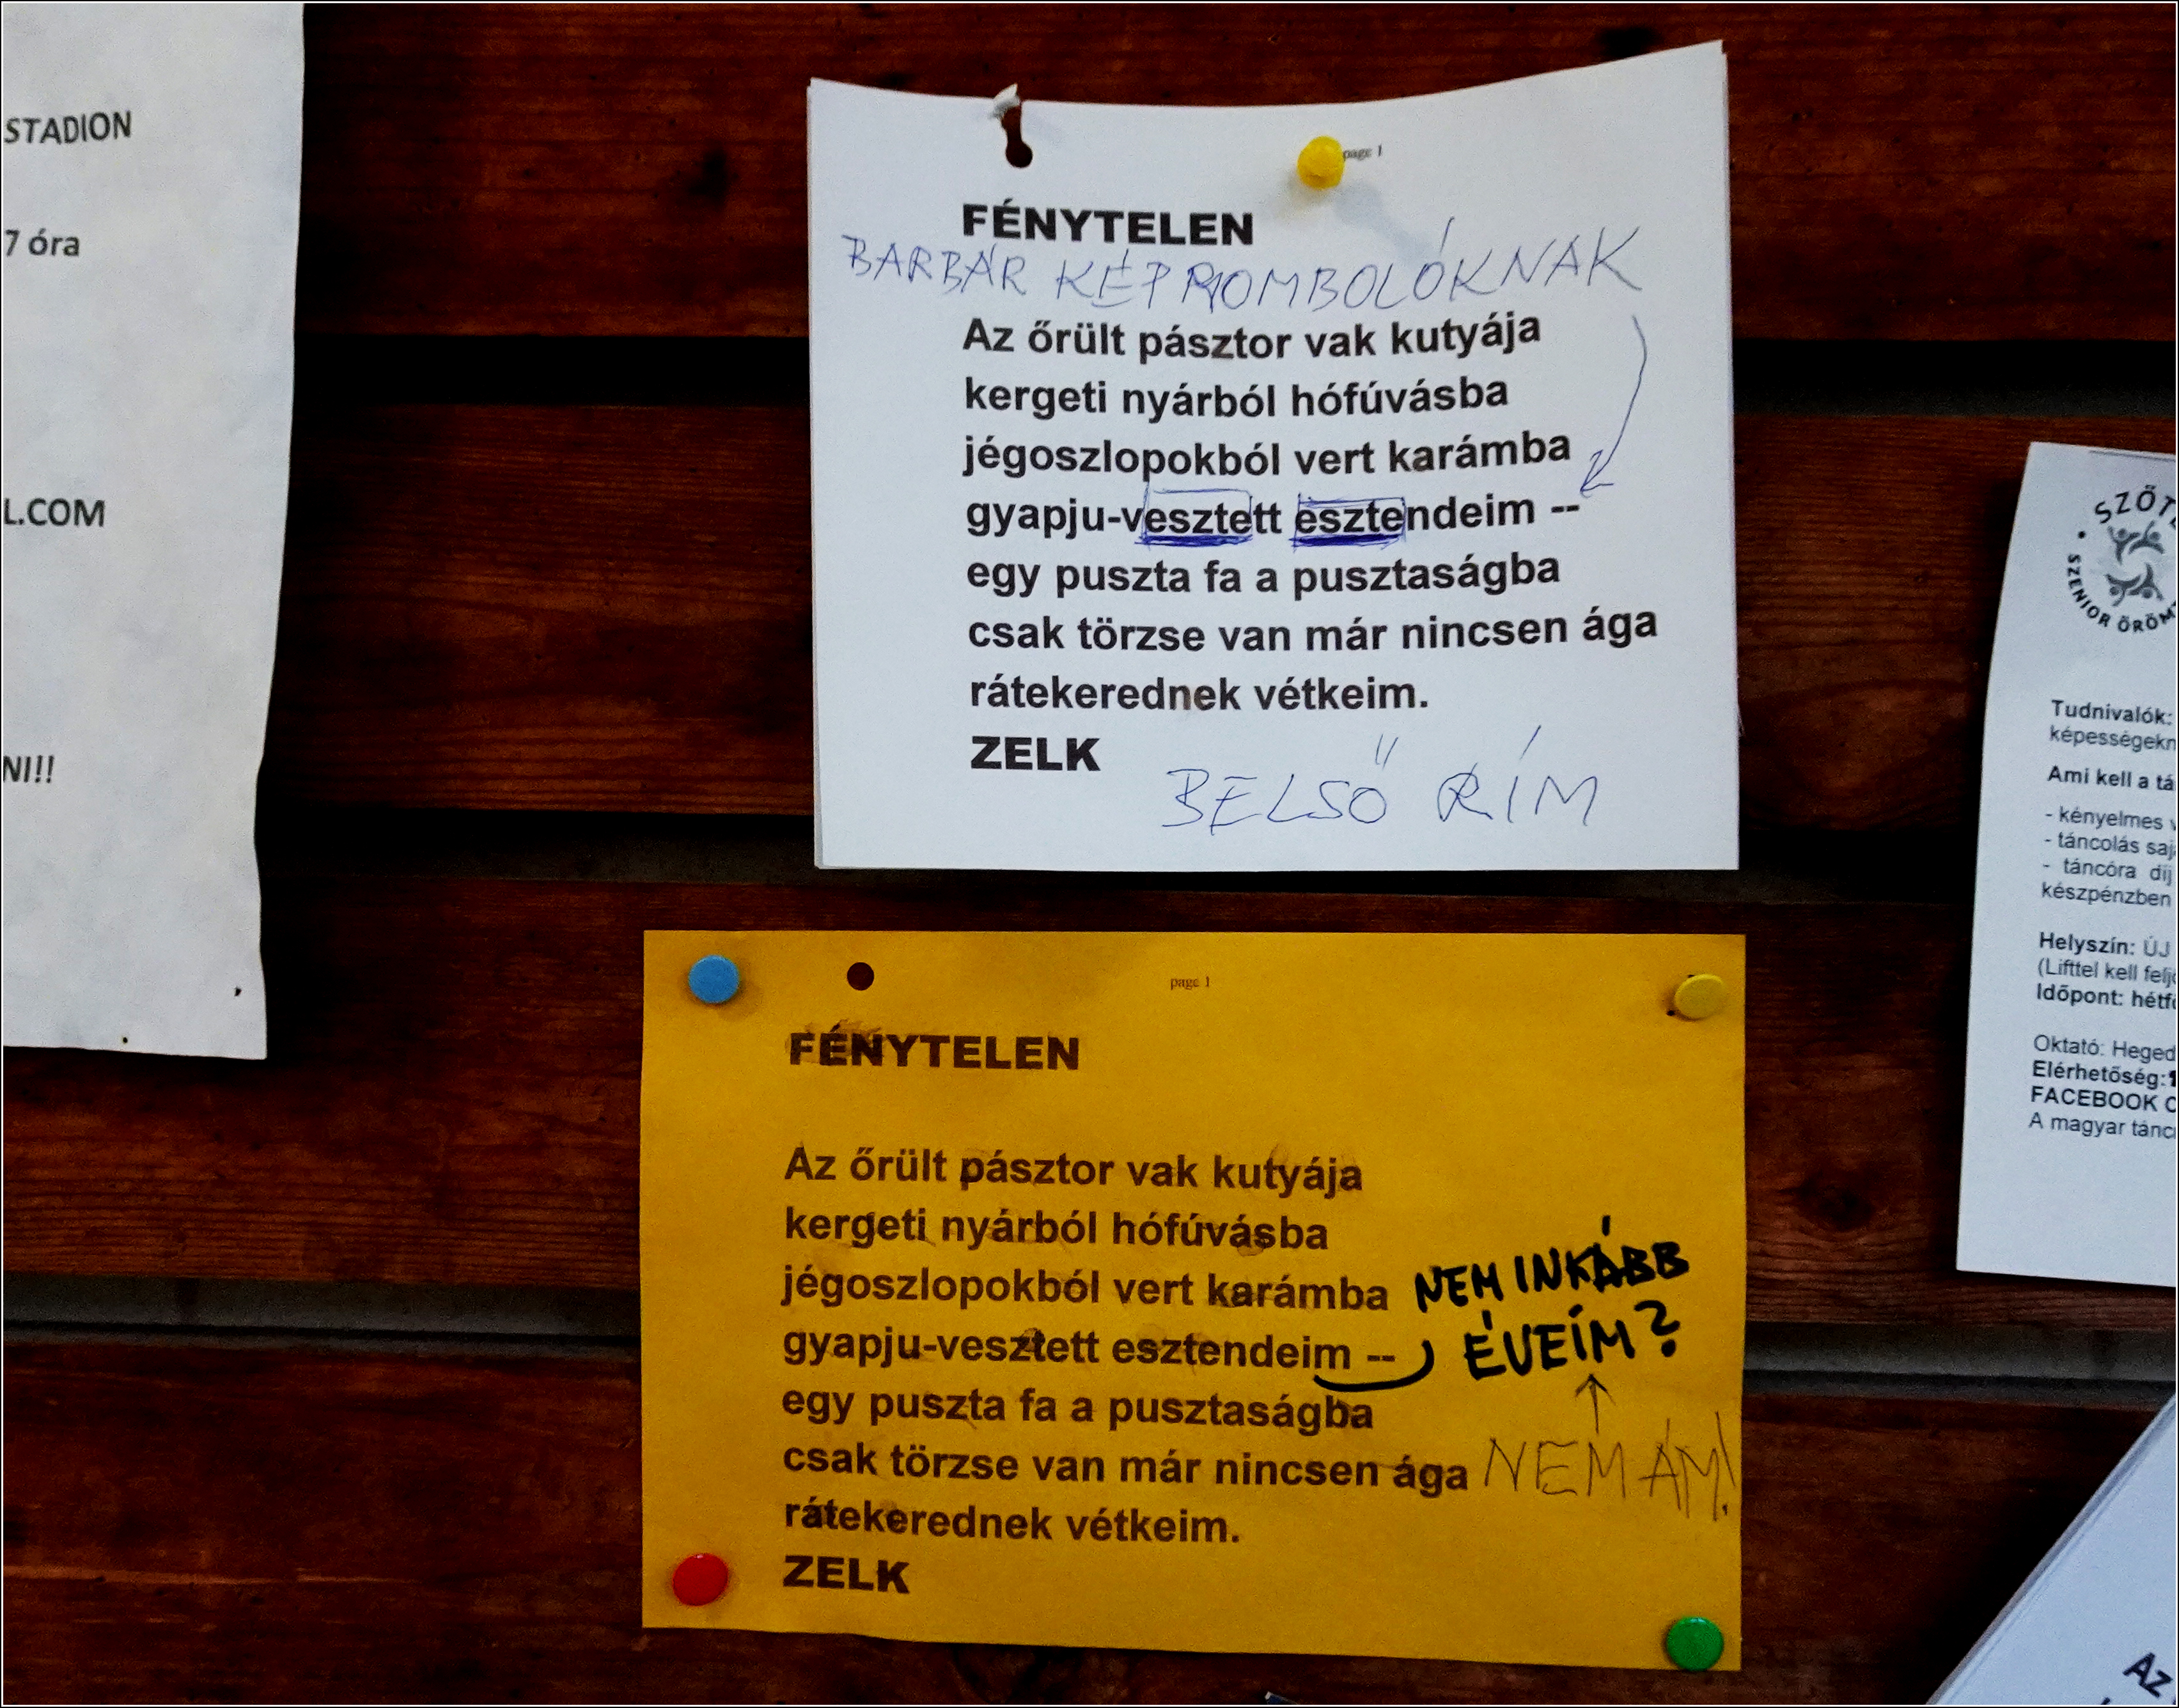 STADION
7 óra
L.COM
NI!!
page 1
FÉNYTELEN
BARBÁR KÉPROMBOLÓKNAK
Az őrült pásztor vak kutyája
kergeti nyárból hófúvásba
jégoszlopokból vert karámba
gyapju-vesztett esztendeim --
egy puszta fa a pusztaságba
csak törzse van már nincsen ága
rátekerednek vétkeim.
ZELK
BELSŐ RÍM
page 1
FÉNYTELEN
Az őrült pásztor vak kutyája
kergeti nyárból hófúvásba
jégoszlopokból vert karámba
gyapju-vesztett esztendeim --
egy puszta fa a pusztaságba
csak törzse van már nincsen ága
rátekerednek vétkeim.
ZELK
NEM INKÁBB
ÉVEIM?
NEM ÁM!
SZŐT
SZENIOR ÖRÖM
Tudnivalók:
képességekn
Ami kell a tá
- kényelmes v
- táncolás saj
- táncóra díj
készpénzben
Helyszín: ÚJ
(Lifttel kell felj
Időpont: hétf
Oktató: Heged
Elérhetőség:
FACEBOOK C
A magyar tánc
AZ